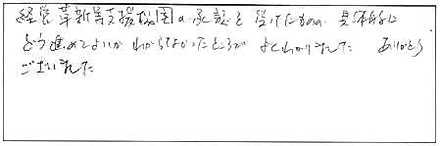 経営革新等支援機関の承認を受けたものの 具体的に
どう進めてよいか わからなかったところが よくわかりました ありがとう
ございました